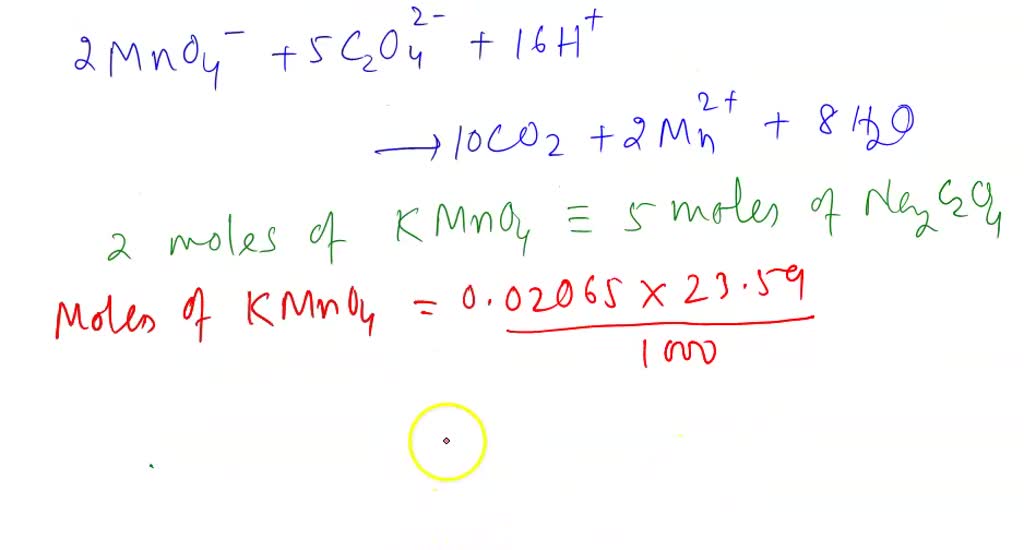 2MnO₄⁻ + 5C₂O₄²⁻ + 16H⁺
→ 10CO₂ + 2Mn²⁺ + 8H₂O
2 moles of KMnO₄ ≡ 5 moles of Na₂C₂O₄
Moles of KMnO₄ = 0.02065 × 23.59
1000